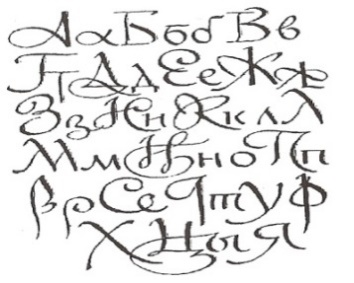 А а Б б б В в
Г Д д Е е Ж ж
З з И н К к л Л
М м Н н о П п
Р р С с Ч т У Ф
Х Ц ы Я